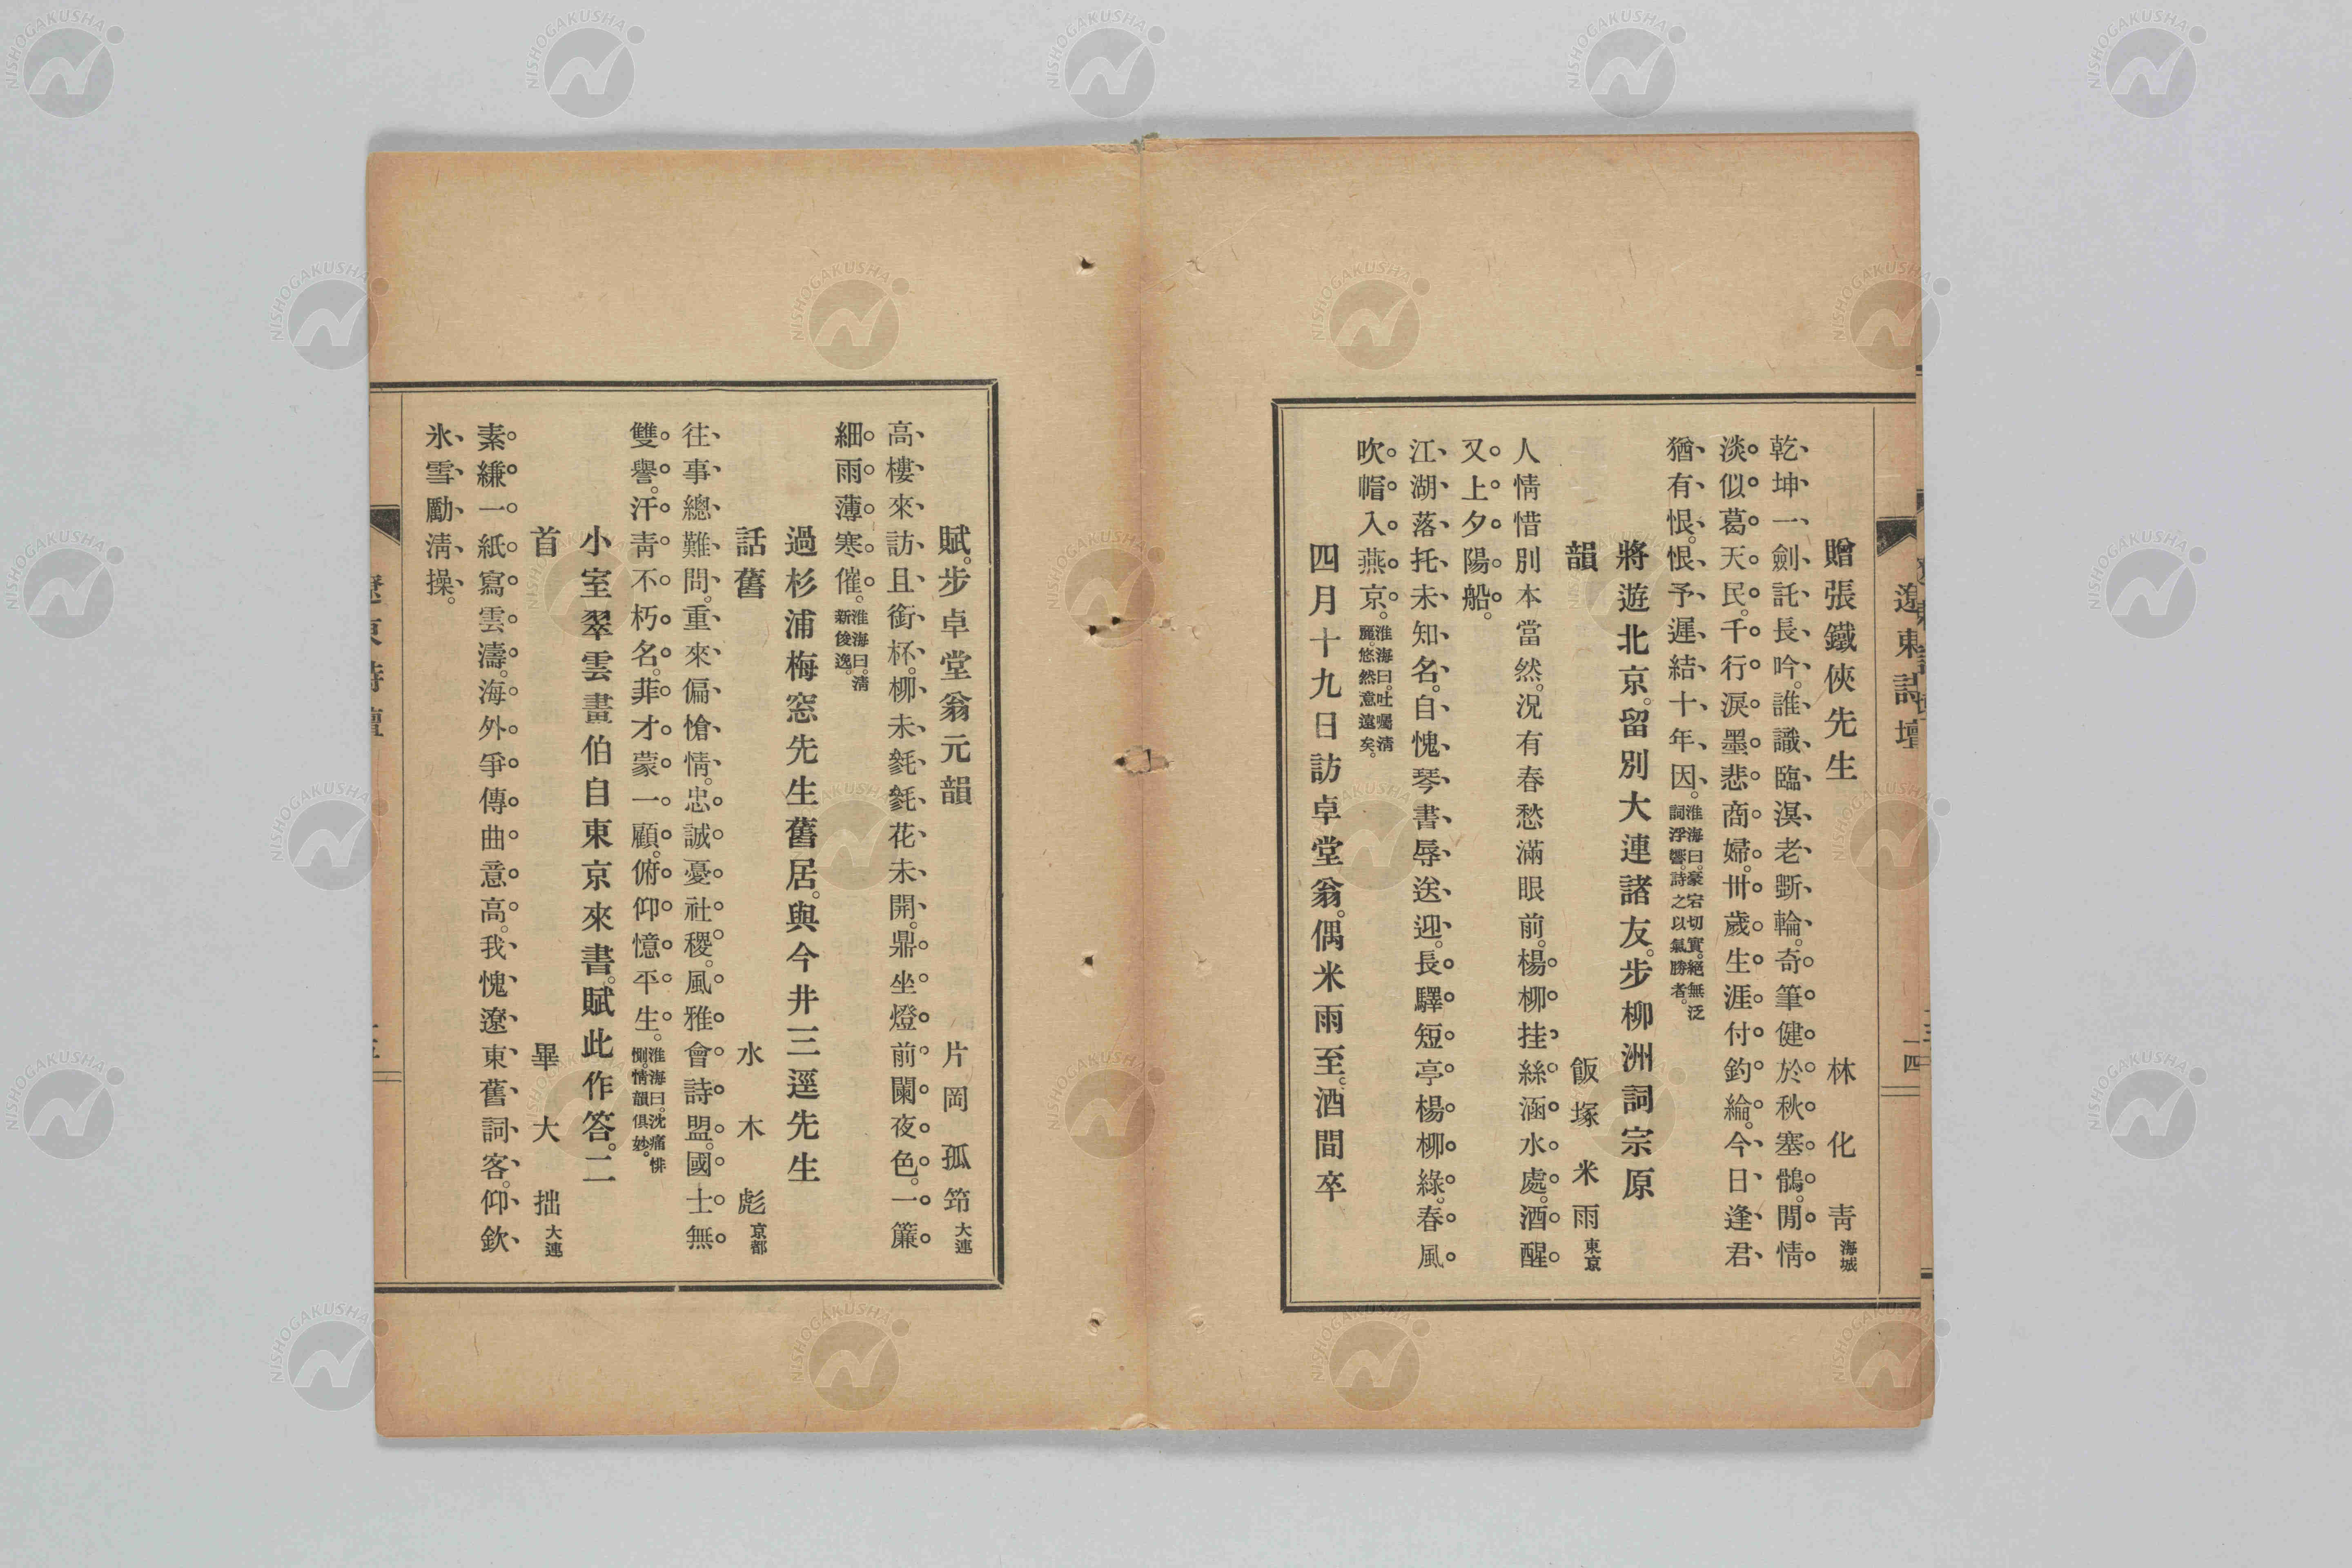 遼東詩壇
一四
贈張鐵俠先生
林化靑 海城
乾坤一劍託長吟。誰識臨溟老斲輪。奇筆健於秋塞鶻。閒情
淡似葛天民。千行淚墨悲商婦。卅歲生涯付釣綸。今日逢君
猶有恨。恨予遲結十年因。淮海曰。豪宕切實。絕無泛詞浮響。詩之以氣勝者。
將遊北京。留別大連諸友。步柳洲詞宗原
韻
飯塚米雨 東京
人情惜別本當然。況有春愁滿眼前。楊柳挂絲涵水處。酒醒
又上夕陽船。
江湖落托未知名。自愧琴書辱送迎。長驛短亭楊柳綠。春風
吹帽入燕京。淮海曰。吐囑淸麗。悠然意遠矣。
四月十九日訪卓堂翁。偶米雨至。酒間卒
賦。步卓堂翁元韻
片岡孤筇 大連
高樓來訪且銜杯。柳未毿毿花未開。鼎坐燈前闌夜色。一簾
細雨薄寒催。淮海曰。淸新俊逸。
過杉浦梅窓先生舊居。與今井三逕先生
話舊
水木彪 京都
往事總難問。重來偏愴情。忠誠憂社稷。風雅會詩盟。國士無
雙譽。汗靑不朽名。菲才蒙一顧。俯仰憶平生。淮海曰。沈痛悱惻。情韻俱妙。
小室翠雲畫伯自東京來書。賦此作答。二
首
畢大拙 大連
素縑一紙寫雲濤。海外爭傳曲意高。我愧遼東舊詞客。仰欽
氷雪勵淸操。
遼東詩壇